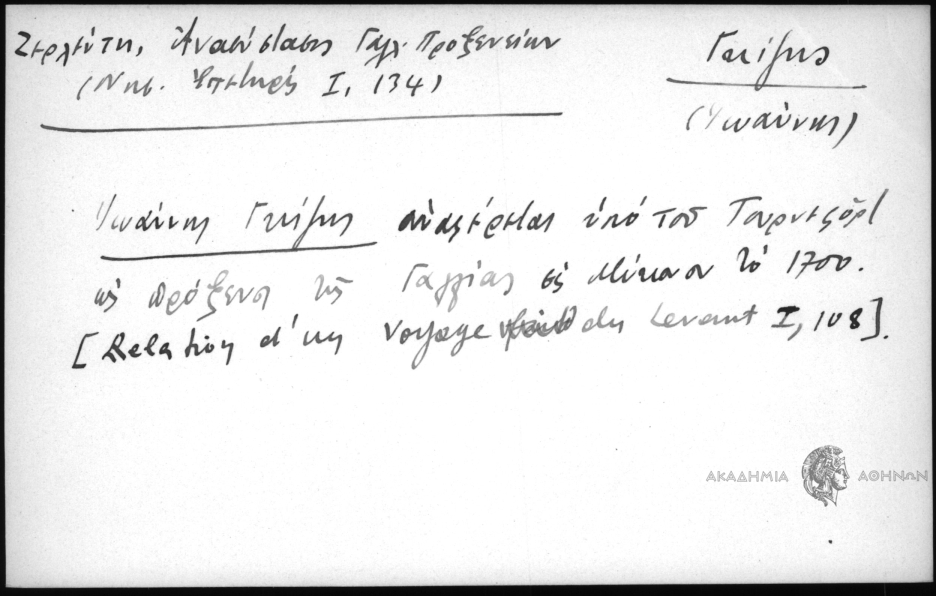 Ζερλέντη, Ἀνασύστασις Γαλ. Προξενείων
(Νησ. Ἐπετηρὶς I, 134)
Γκίζης
(Ἰωάννης)
Ἰωάννης Γκίζης ἀναφέρεται ὑπὸ τοῦ Τουρνεφὸρ
ὡς πρόξενος τῆς Γαλλίας εἰς Μύκονον τὸ 1700.
[Relation d'un Voyage du Levant I, 108].
ΑΚΑΔΗΜΙΑ ΑΘΗΝΩΝ